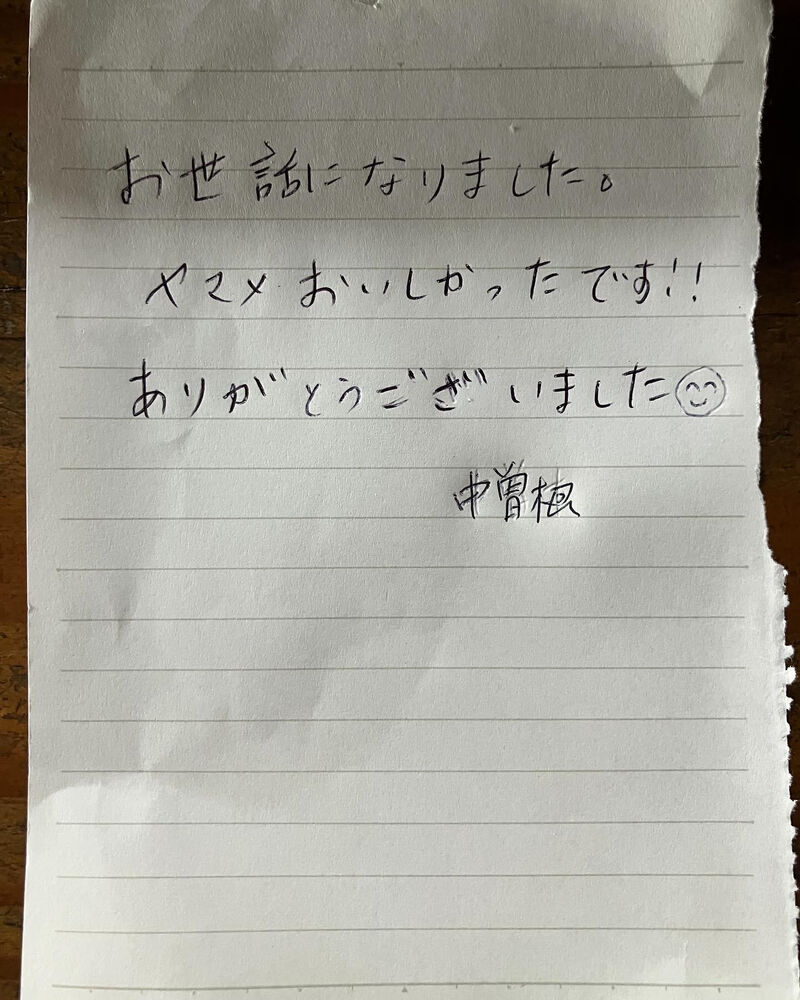 お世話になりました。
ヤマメおいしかったです!!
ありがとうございました😊
中曽根